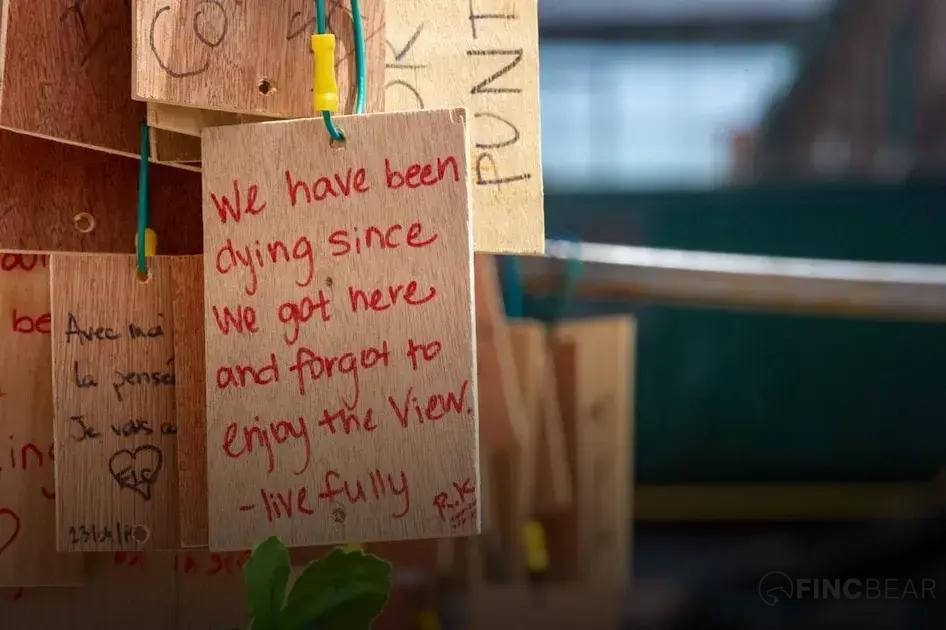 CO
OK
PUNT
We have been
dying since
we got here
and forgot to
enjoy the View.
-live fully
R.K
be
ing
Avec moi
la pensé
Je vous a
FINCBEAR